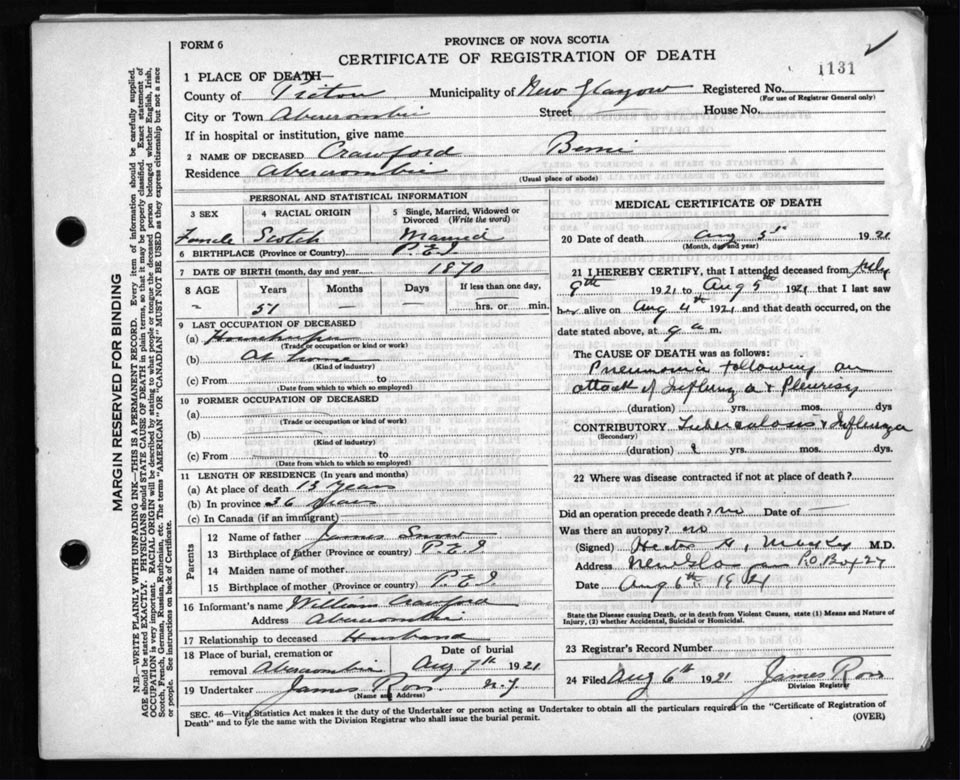 FORM 6
PROVINCE OF NOVA SCOTIA
CERTIFICATE OF REGISTRATION OF DEATH
1131
1 PLACE OF DEATH—
County of Pictou Municipality of New Glasgow Registered No.
(For use of Registrar General only)
City or Town Abercrombie Street House No.
If in hospital or institution, give name
2 NAME OF DECEASED Crawford
Residence Abercrombie
(Usual place of abode)
PERSONAL AND STATISTICAL INFORMATION
3 SEX 4 RACIAL ORIGIN 5 Single, Married, Widowed or Divorced (Write the word)
Female Scotch Married
6 BIRTHPLACE (Province or Country) P.E.I
7 DATE OF BIRTH (month, day and year) 1870
8 AGE Years Months Days If less than one day,
— 51 — — hrs. or min.
9 LAST OCCUPATION OF DECEASED
(a) Housekeeper
(Trade or occupation or kind or work)
(b) At home
(Kind of industry)
(c) From to
(Date from which to which so employed)
10 FORMER OCCUPATION OF DECEASED
(a)
(Trade or occupation or kind of work)
(b)
(Kind of industry)
(c) From to
(Date from which to which so employed)
11 LENGTH OF RESIDENCE (In years and months)
(a) At place of death 13 years
(b) In province 36 years
(c) In Canada (if an immigrant)
Parents
12 Name of father James Snow
13 Birthplace of father (Province or country) P.E.I
14 Maiden name of mother
15 Birthplace of mother (Province or country) P.E.I
16 Informant's name William Crawford
Address Abercrombie
17 Relationship to deceased Husband
18 Place of burial, cremation or removal Abercrombie Date of burial Aug 7th 1921
19 Undertaker James Ross N.G.
(Name and Address)
MEDICAL CERTIFICATE OF DEATH
20 Date of death Aug 5th 1921
(Month, day and year)
21 I HEREBY CERTIFY, that I attended deceased from July
9th 1921 to Aug 5th 1921 that I last saw
her alive on Aug 4th 1921 and that death occurred, on
date stated above, at 9 a m.
The CAUSE OF DEATH was as follows:
Pneumonia following an
attack of Influenza & Pleurisy
(duration) yrs. mos. dys
CONTRIBUTORY Tuberculosis & Influenza
(Secondary)
(duration) yrs. mos. dys.
22 Where was disease contracted if not at place of death?
Did an operation precede death? no Date of —
Was there an autopsy? no
(Signed) M.D.
Address New Glasgow P.O. Box 27
Date Aug 6th 1921
State the Disease causing Death, or in death from Violent Causes, state (1) Means and Nature of Injury, (2) whether Accidental, Suicidal or Homicidal.
23 Registrar's Record Number
24 Filed Aug 6th 1921 James Ross
Division Registrar
SEC. 46—Vital Statistics Act makes it the duty of the Undertaker or person acting as Undertaker to obtain all the particulars required in the "Certificate of Registration of
Death" and to file the same with the Division Registrar who shall issue the burial permit.
(OVER)
MARGIN RESERVED FOR BINDING
N.B.—WRITE PLAINLY WITH UNFADING INK—THIS IS A PERMANENT RECORD. Every item of information should be carefully supplied.
AGE should be stated EXACTLY. PHYSICIANS should STATE CAUSE OF DEATH in plain terms, so that it may be properly classified. Exact statement of
OCCUPATION is very important. RACIAL ORIGIN will be described by stating to what people or tongue the deceased person belonged whether English, Irish,
Scotch, French, German, Russian, Ruthenian, etc. The terms "AMERICAN" OR "CANADIAN" MUST NOT BE USED as they express citizenship but not a race
or people. See instructions on back of Certificate.